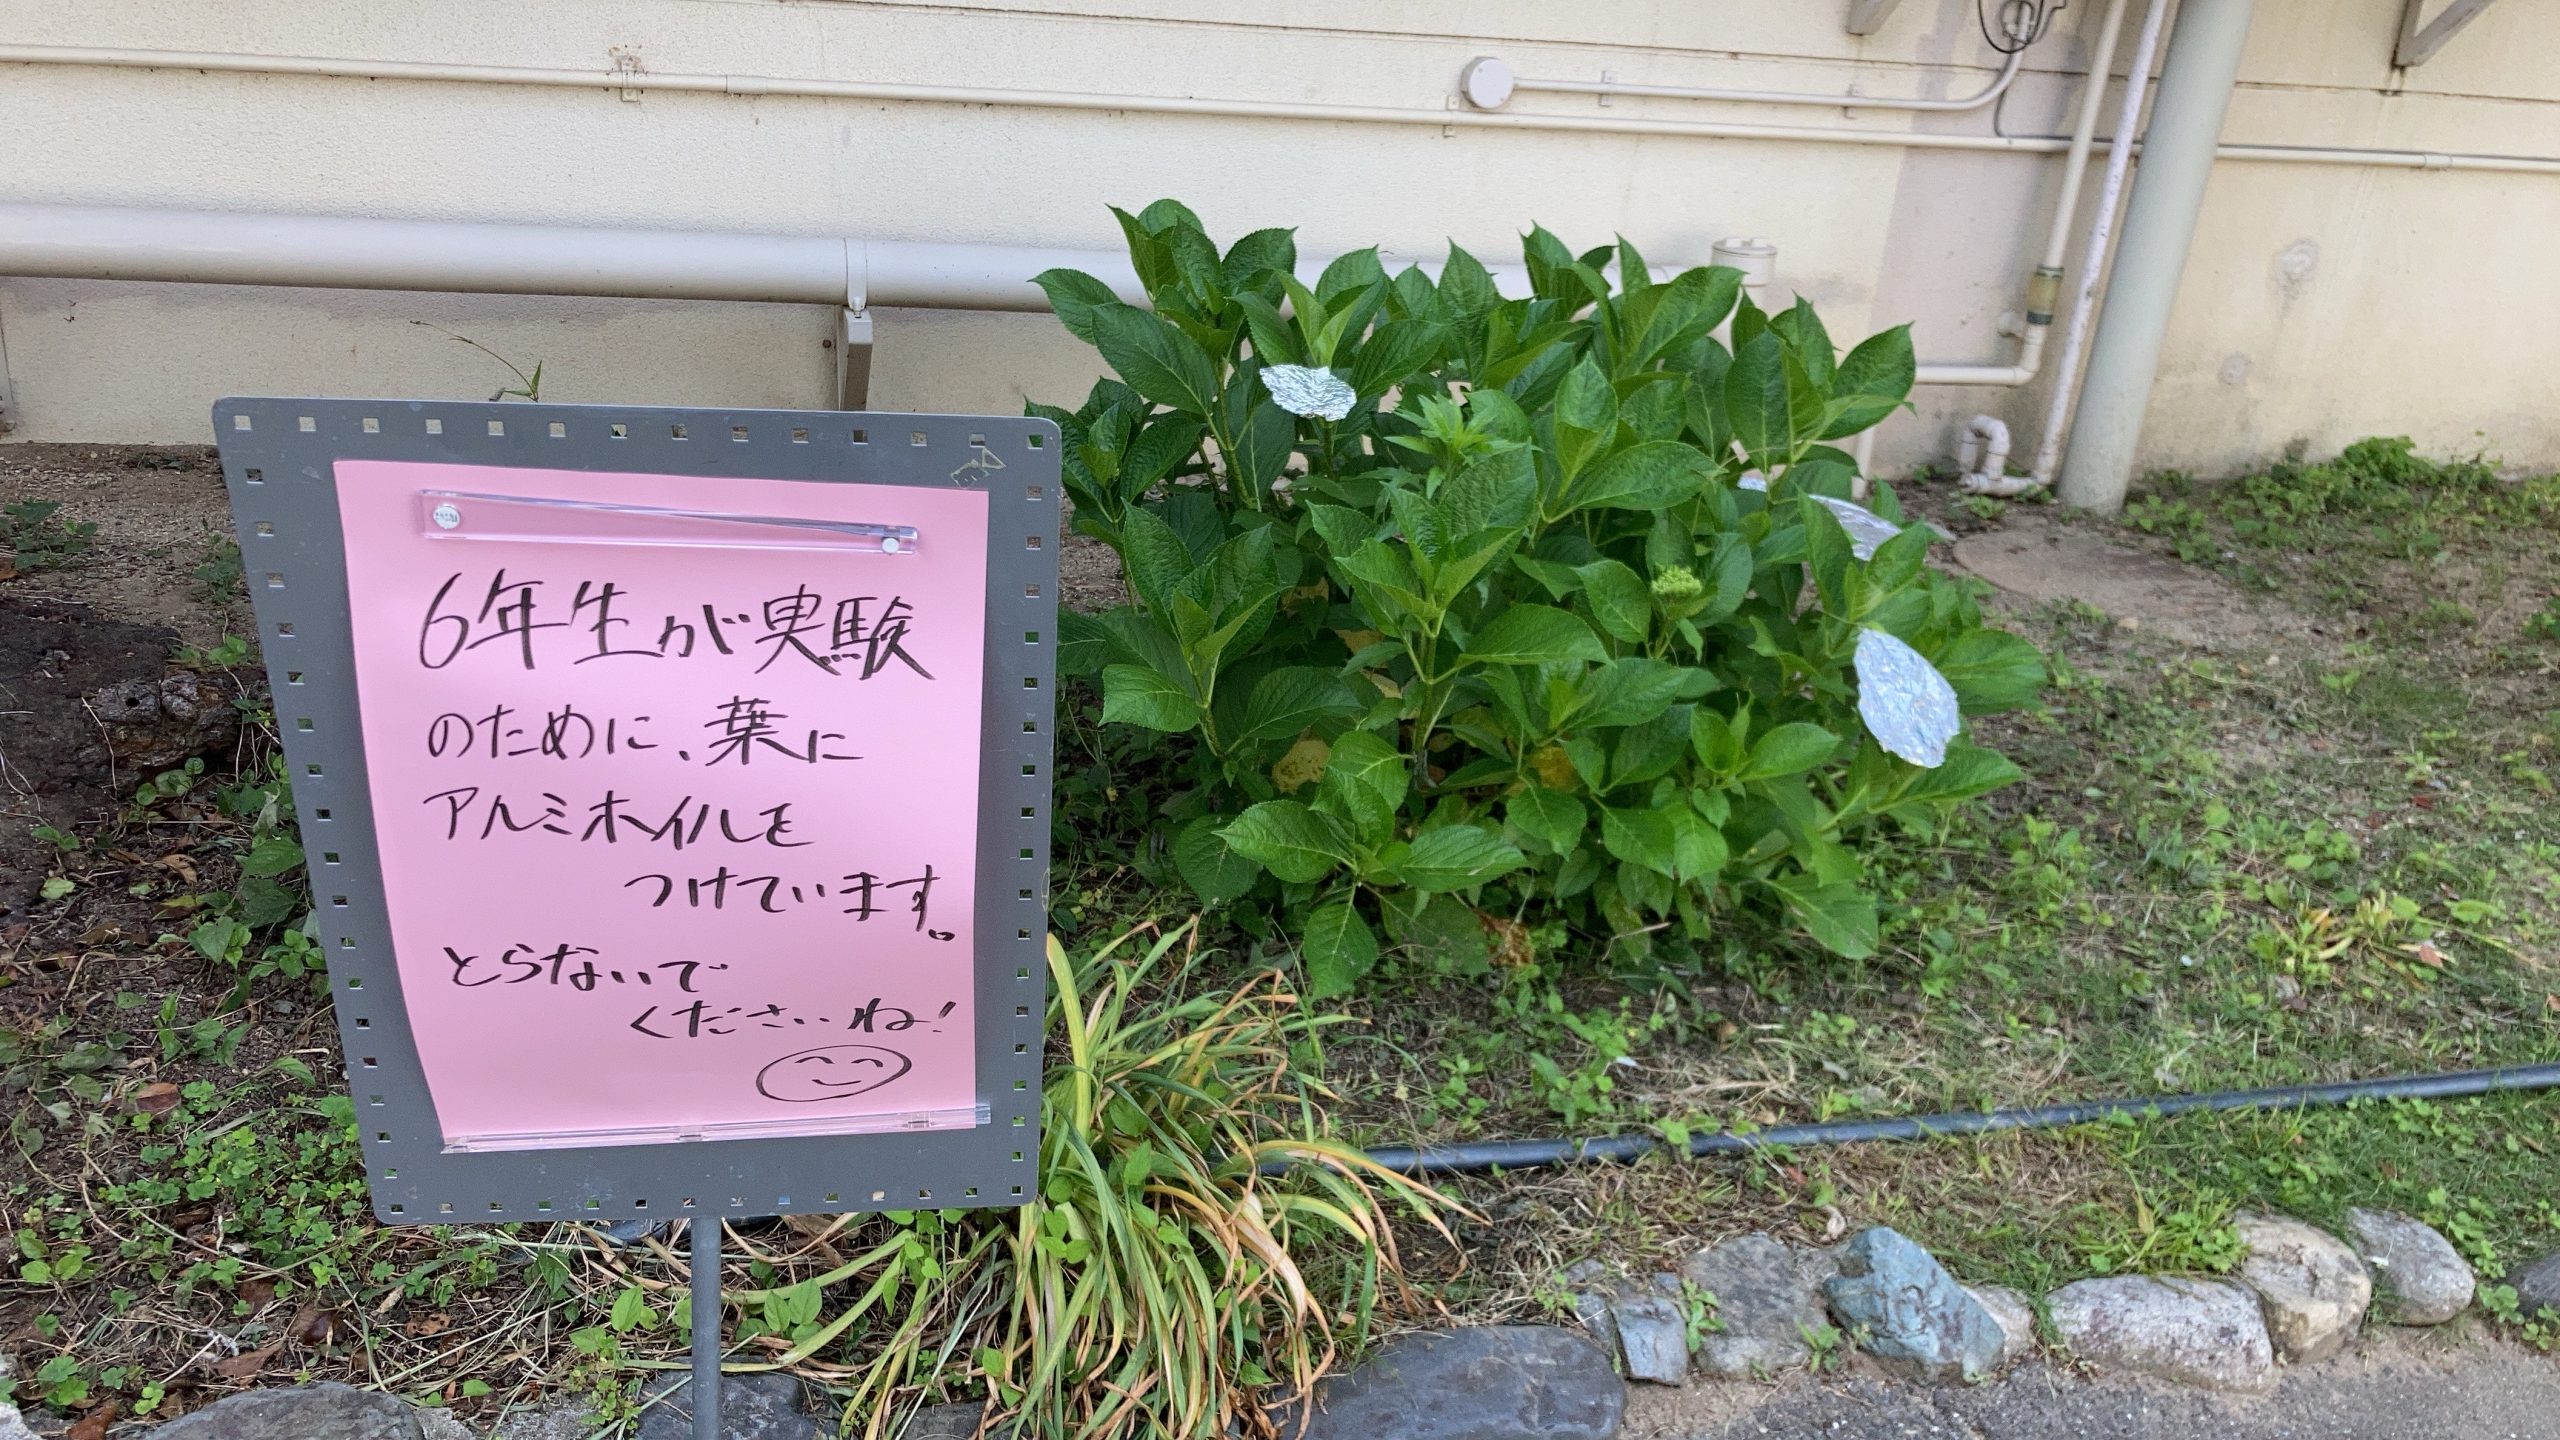 6年生が実験
のために、葉に
アルミホイルを
つけています。
とらないで
くださいね!